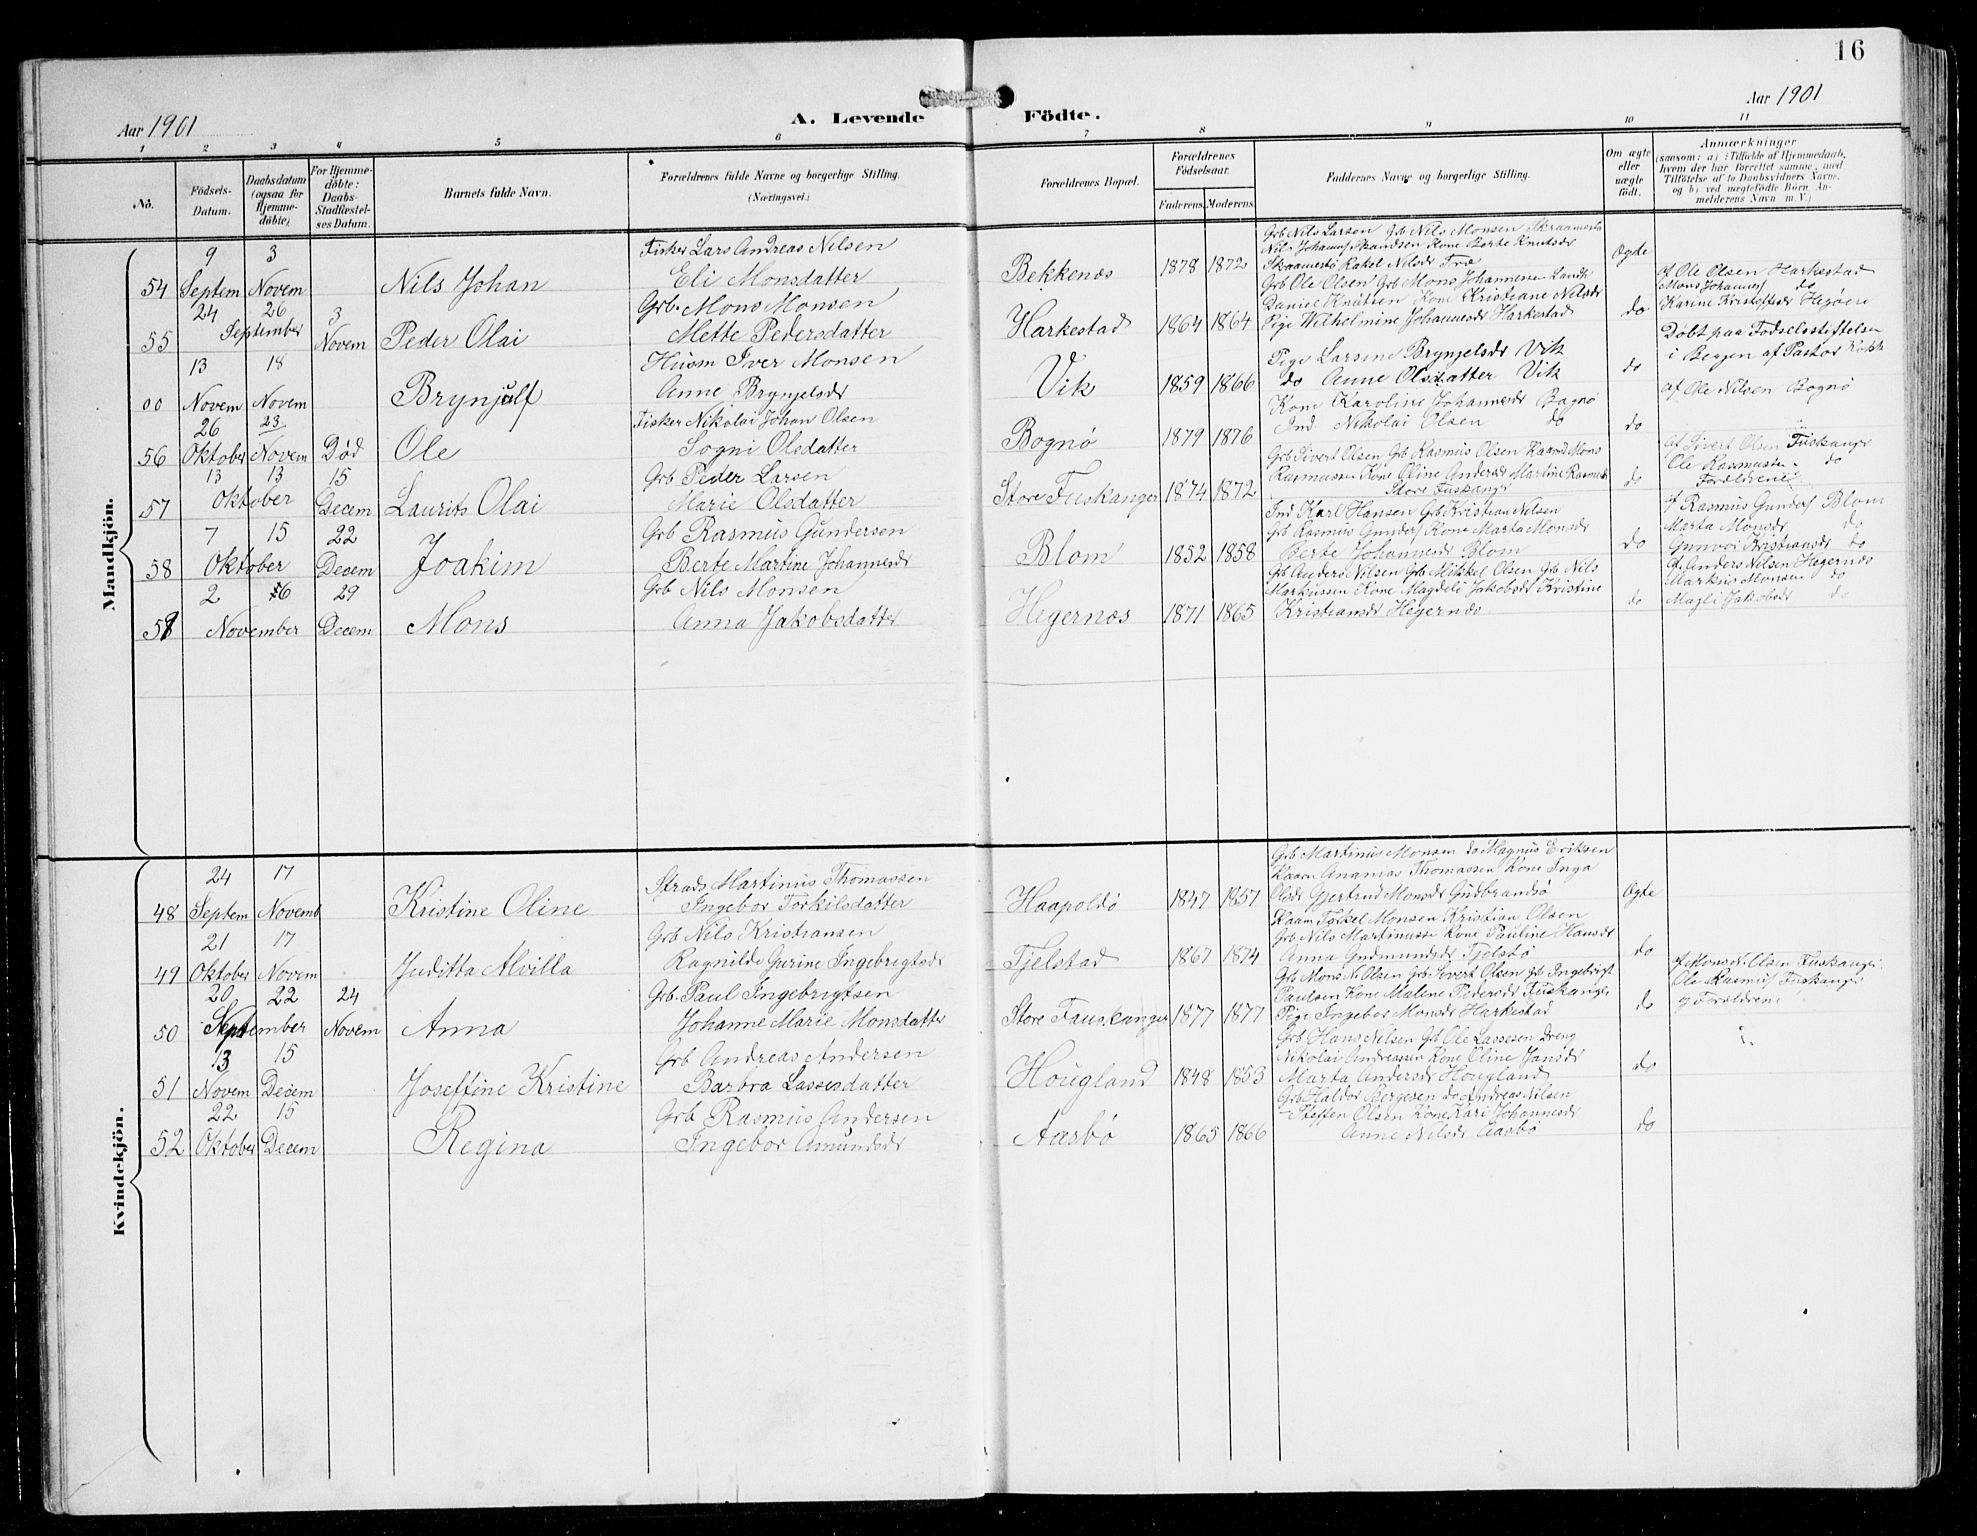 16
Aar 1901
A. Levende Födte.
Aar 1901
1 2 3 4 5 6 7 8 9 10 11
No.
Födsels-Datum.
Daabsdatum (ogsaa for Hjemme-döbte)
For Hjemme-döbte: Daabs-Stadfæstel-ses Datum.
Barnets fulde Navn.
Forældrenes fulde Navne og borgerlige Stilling.
(Næringsvei.)
Forældrenes Bopæl.
Forældrenes Födselsaar.
Faderens. Moderens.
Faddernes Navne og borgerlige Stilling.
Om ægte eller uægte födt.
Anmærkninger
(saasom: a) i Tilfælde af Hjemmedaab, hvem der har forrettet samme, med Tilföielse af to Daabsvidners Navne, og b) ved uægtefödte Börn An-melderens Navn m. V.)
Mandkjön.
54 9 Septem 3 Novem Nils Johan
Fisker Lars Andreas Nilsen
Eli Monsdatter
Bekkenes 1878 1872
Grb Nils Larsen Grb Nils Monsen Skraamestö
Nils Johannes Skaandsen Kone Berte Knutsdr
Skraamestö Rakel Nilsdr Træ
Ægte
55 24 September 26 3 Novem Peder Olai
Grb. Mons Monsen
Mette Pedersdatter
Harkestad 1864 1864
Grb Ole Olsen Grb Mons Johannessen Landk
Daniel Knutsen Kone Kristiane Nilsdr
Pige Wilhelmine Johannesdr Harkestad
do
af Ole Olsen Harkestad
Mons Johannes do
Karine Kristoffersdr Hegöen
00 13 Novem 18 Novem Brynjulf
Husm Iver Monsen
Anne Brynjelsdr
Vik 1859 1866
Pige Larsine Brynjelsdr Vik
do Anne Olsdatter Vik
do
Döbt paa Födselsstiftelsen
i Bergen af Pastor Kokk
56 26 Oktober 23 Novem Död Ole
Fisker Nikolai Johan Olsen
Sogni Olsdatter
Bognö 1879 1876
Kone Karoline Johannesdr Bognö
Ind. Nikolai Olsen do
do
af Ole Nilsen Bognö
57 13 Oktober 13 15 Decem Laurits Olai
Grb Peder Larsen
Marie Olsdatter
Store Fuskanger 1874 1872
Grb Sivert Olsen Grb Rasmus Olsen Kaarm Mons
Rasmussen Kone Oline Andersdr Martine Rasmusdr
Store Fuskanger
do
af Sivert Olsen Fuskanger
Ole Rasmussen do
Forældrene
58 7 Oktober 15 22 Decem Joakim
Grb Rasmus Gundersen
Berte Martine Johannesdr
Blom 1852 1858
Ind Karl Hansen Grb Kristian Nilsen
Grb Rasmus Gunders Kone Marta Monsdr
Berte Johannesdr Blom
do
af Rasmus Gunders Blom
Marta Monsdr do
Gunvor Kristiansdr do
59 2 November 26 29 Decem Mons
Grb Nils Monsen
Anna Jakobsdatter
Hegernes 1871 1865
Grb Anders Nilsen Grb Mikkel Olsen Grb Nils
Markussen Kone Magdeli Jakobsdr Kristine
Kristiansdr Hegernes
do
af Anders Nilsen Hegernes
Markus Monsen do
Magli Jakobsdr do
Kvindekjön.
48 24 Septem 17 Novemb Kristine Oline
Strads Martinus Thomassen
Ingebor Torkilsdatter
Haapoldö 1847 1857
Grb Martinus Monsen do Magnus Eriksen
Kaarm Ananias Thomassen Kone Inga
Olsdr Gjertrud Monsdr Gudbrandsö
Ægte
49 21 Oktober 17 Novem Juditta Alvilla
Grb Nils Kristiansen
Ragnilde Gurine Ingebrigtsdr
Tjelstad 1867 1874
Kaarm Torkel Monsen Kristian Olsen
Grb Nils Martinussen Kone Pauline Hansdr
Anna Gudmundsdr Tjelstö
do
50 20 September 22 24 Novem Anna
Grb. Paul Ingebrigtsen
Johanne Marie Monsdatter
Store Fauskanger 1877 1877
Grb Mons N. Olsen Grb Sivert Olsen Grb Ingebrigt
Paulsen Kone Maline Pedersdr Fuskanger
Pige Ingebor Monsdr Harkestad
do
af Mons N. Olsen Fuskanger
Ole Rasmus Fuskanger
og Forældrene
51 13 Novem 15 Decem Joseffine Kristine
Grb Andreas Andersen
Barbra Lassesdatter
Hougland 1848 1853
Grb Hans Nilsen Grb Ole Lassesen Dreng
Nikolai Andreassen Kone Oline Jansdr
Marta Andersdr Hougland
do
52 22 Oktober 15 Decem Regina
Grb Rasmus Andersen
Ingebor Amundsdr
Aasbö 1865 1866
Grb Haldor Bergesen do Andreas Nilsen
Steffen Olsen Kone Kari Johannesdr
Anne Nilsdr Aasbö
do